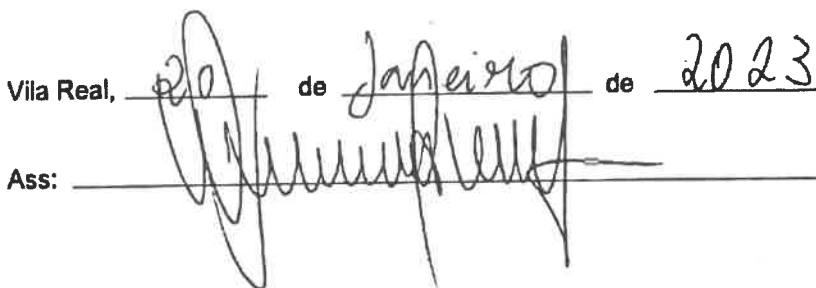 Vila Real, 20 de Janeiro de 2023
Ass: